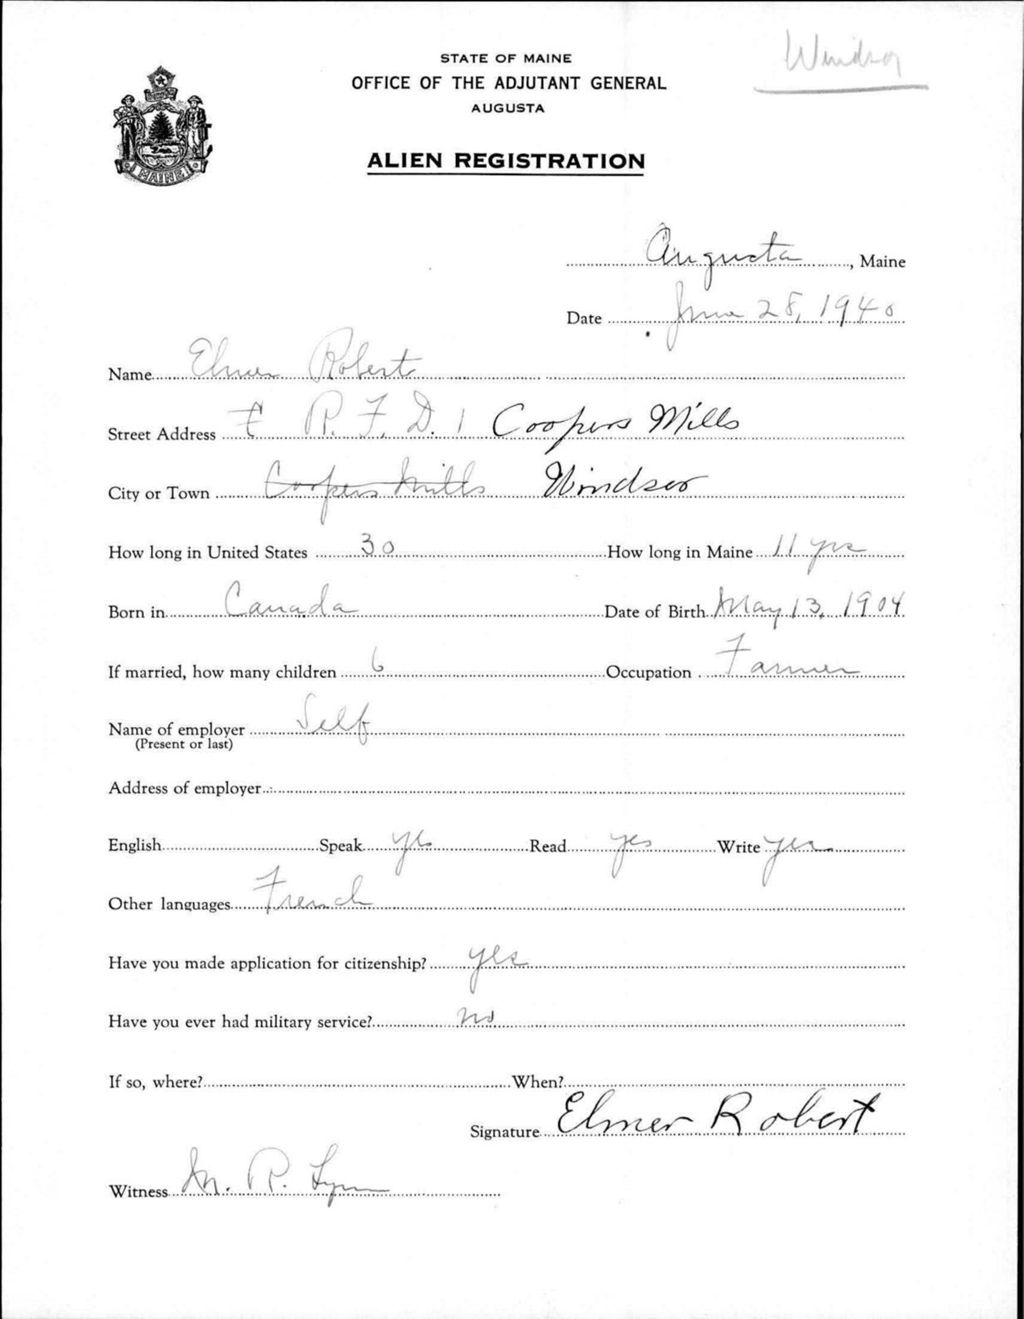 Windsor
STATE OF MAINE
OFFICE OF THE ADJUTANT GENERAL
AUGUSTA
MAINE
ALIEN REGISTRATION
Augusta, Maine
Date June 28, 1940
Name Elmer Robert
Street Address R. F. D. 1 Coopers Mills
City or Town Coopers Mills Windsor
How long in United States 30 How long in Maine 11 yrs
Born in Canada Date of Birth May 13, 1904
If married, how many children 6 Occupation Farmer
Name of employer Self
(Present or last)
Address of employer
English Speak yes Read yes Write yes
Other languages French
Have you made application for citizenship? yes
Have you ever had military service? no
If so, where? When?
Signature Elmer Robert
Witness M. R. Lynn